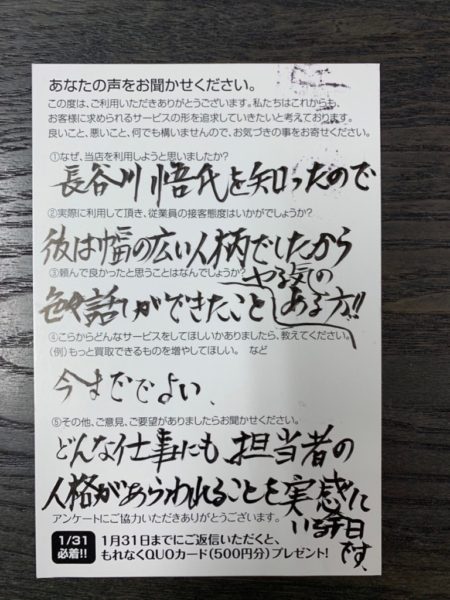 あなたの声をお聞かせください。
この度は、ご利用いただきありがとうございます。私たちはこれからも、
お客様に求められるサービスの形を追求していきたいと考えております。
良いこと、悪いこと、何でも構いませんので、お気づきの事をお寄せください。
①なぜ、当店を利用しようと思いましたか?
長谷川悟氏を知ったので
②実際に利用して頂き、従業員の接客態度はいかがでしょうか?
彼は幅の広い人柄でしたから
③頼んで良かったと思うことはなんでしょうか?
やる気の
色々話しができたこと ある方!!
④こらからどんなサービスをしてほしいかありましたら、教えてください。
(例)もっと買取できるものを増やしてほしい。 など
今まででよい、
⑤その他、ご意見、ご要望がありましたらお聞かせください。
どんな仕事にも、担当者の
人格があらわれることを実感して
いる今日
です、
アンケートにご協力いただきありがとうございます。
1/31
必着!!
1月31日までにご返信いただくと、
もれなくQUOカード(500円分)プレゼント!